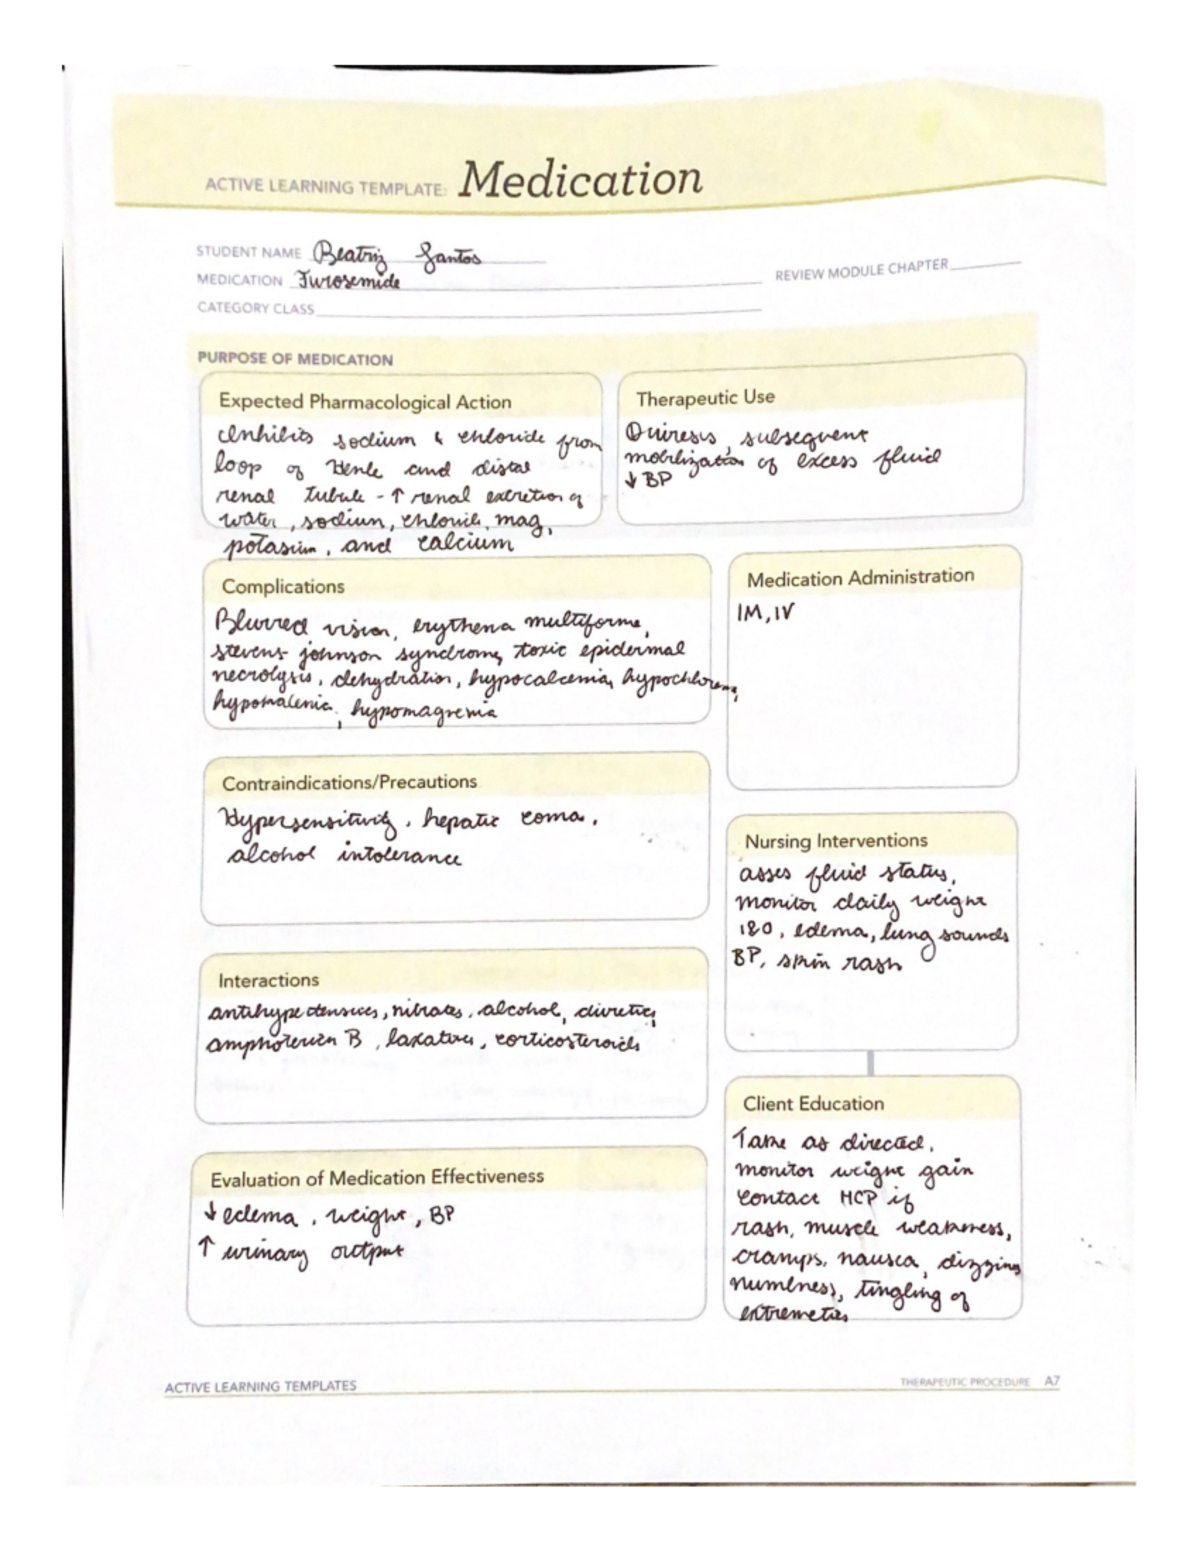 ACTIVE LEARNING TEMPLATE: Medication
STUDENT NAME Beatriz Santos
MEDICATION Furosemide
REVIEW MODULE CHAPTER
CATEGORY CLASS
PURPOSE OF MEDICATION
Expected Pharmacological Action
Inhibits sodium & chloride from
loop of Henle and distal
renal tubule - ↑ renal excretion of
water, sodium, chloride, mag,
potassium, and calcium
Therapeutic Use
Diuresis, subsequent
mobilization of excess fluid
↓ BP
Complications
Blurred vision, erythema multiforme,
stevens-johnson syndrome, toxic epidermal
necrolysis, dehydration, hypocalcemia, hypochloremia,
hypomagremia
Medication Administration
IM, IV
Contraindications/Precautions
Hypersensitivity, hepatic coma,
alcohol intolerance
Nursing Interventions
asses fluid status,
monitor daily weight
I&O, edema, lung sounds
BP, skin rash
Interactions
antihypertensives, nitrates, alcohol, diuretics,
amphotericin B, laxatives, corticosteroids
Client Education
Take as directed,
monitor weight gain
contact HCP if
rash, muscle weakness,
cramps, nausea, dizziness
numbness, tingling of
extremeties
Evaluation of Medication Effectiveness
↓ edema, weight, BP
↑ urinary output
ACTIVE LEARNING TEMPLATES
THERAPEUTIC PROCEDURE A7